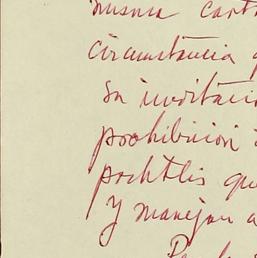 misma cart
circunstancia q
su invitació
prohibición d
pochtlis qu
y manejan a